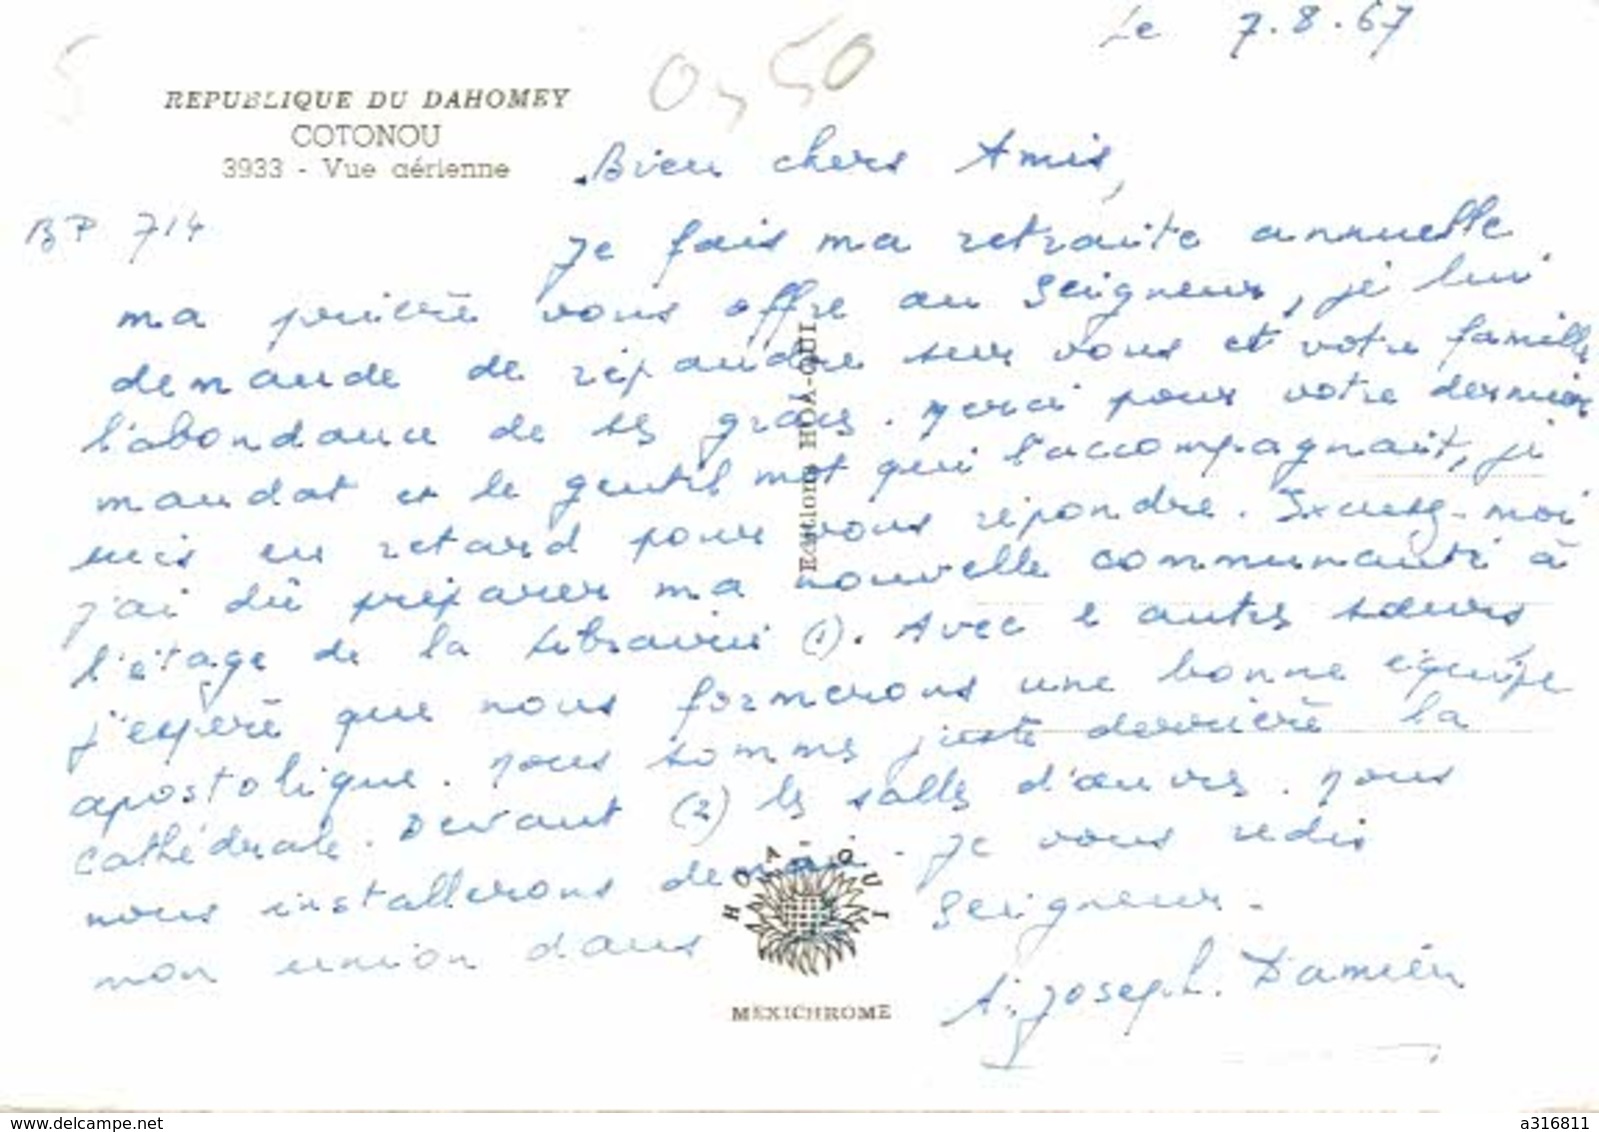 Le 7.8.67
0,50
REPUBLIQUE DU DAHOMEY
COTONOU
3933 - Vue aérienne
BP 714
Bien chers Amis,
Je fais ma retraite annuelle
ma prière vous offre au Seigneur, je lui
demande de répandre sur vous et votre famille
l'abondance de ses grâces. Merci pour votre dernier
mandat et le gentil mot qui l'accompagnait, je
suis en retard pour vous répondre. Excusez-moi
j'ai dû préparer ma nouvelle communauté à
l'étage de la Librairie (1). Avec 2 autres sœurs
j'espère que nous formerons une bonne équipe
apostolique. Nous sommes juste derrière la
cathédrale. Devant (2) les salles d'œuvres. Nous
nous installerons demain. Je vous redis
mon union dans Seigneur.
Joseph. Damien
Editions HOA-QUI
HOA-QUI
MEXICHROME
www.delcampe.net
a316811